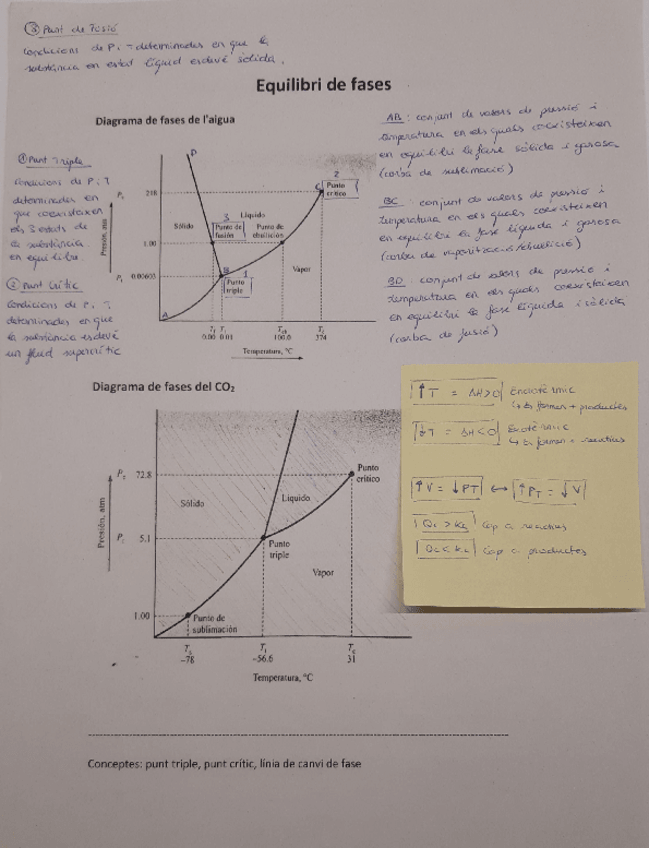 ③ Punt de Fusió
Condicions de P i T determinades en que la
substància en estat líquid esdevé sòlida.
Equilibri de fases
Diagrama de fases de l'aigua
① Punt Triple
Condicions de P i T
determinades en
que coexisteixen
els 3 estats de
la substància
en equilibri.
② Punt Crític
Condicions de P i T
determinades en que
la substància esdevé
un fluid supercrític
Presión, atm
P_c 218
1.00
P_t 0.00603
D
Sólido
Líquido
Vapor
3
Punto de
fusión
Punto de
ebullición
2
C
Punto
crítico
B
1
Punto
triple
A
T_f T_t T_eb T_c
0.00 0.01 100.0 374
Temperatura, °C
AB: conjunt de valors de pressió i
temperatura en els quals coexisteixen
en equilibri la fase sòlida i gasosa
(corba de sublimació)
BC: conjunt de valors de pressió i
temperatura en els quals coexisteixen
en equilibri la fase líquida i gasosa
(corba de vaporització/ebullició)
BD: conjunt de valors de pressió i
temperatura en els quals coexisteixen
en equilibri la fase líquida i sòlida
(corba de fusió)
Diagrama de fases del CO₂
Presión, atm
P_c 72.8
P_t 5.1
1.00
Sólido
Líquido
Vapor
Punto
crítico
Punto
triple
Punto de
sublimación
T_s T_t T_c
−78 −56.6 31
Temperatura, °C
↑T = ΔH>0 Endotèrmic
↳ Es formen + productes
↓T = ΔH<0 Exotèrmic
↳ Es formen + reactius
↑V = ↓PT ↔ ↑PT = ↓V
Qc > Kc Cap a reactius
Qc < Kc Cap a productes
Conceptes: punt triple, punt crític, línia de canvi de fase